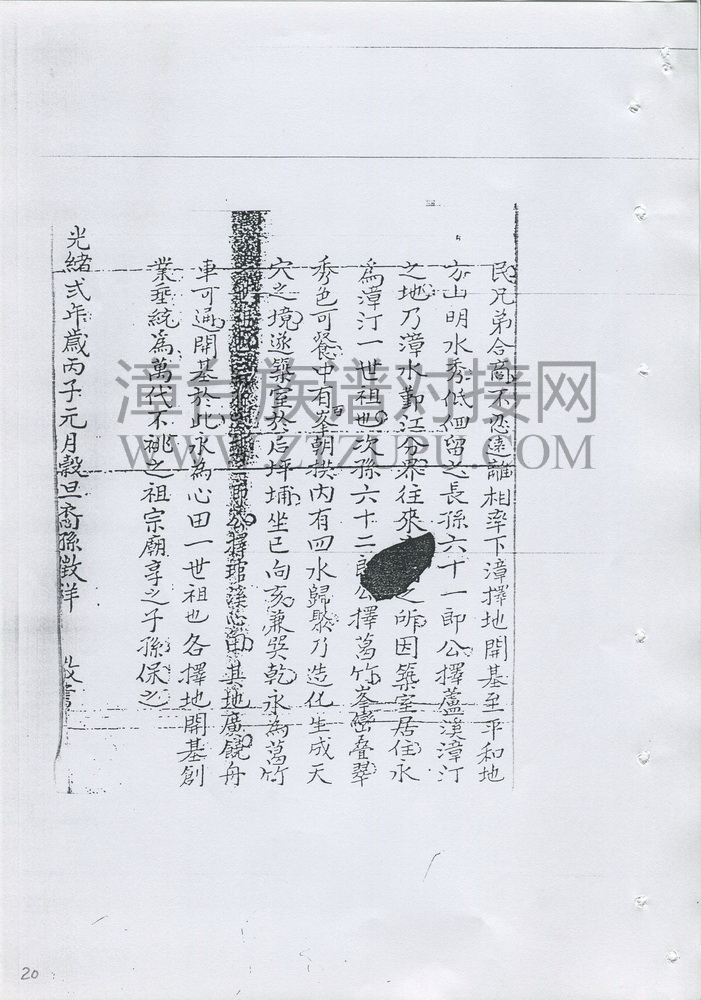 民兄弟合商不忍遠離相率下漳擇地開基至平和地
方山明水秀低佪留之長孫六十一郎公擇蘆溪漳汀
之地乃漳水鄞江分界往來之所因築室居住永
為漳汀一世祖也次孫六十二郎公擇葛竹峯巒叠翠
秀色可餐中有峯朝拱內有四水歸聚乃造化生成天
穴之境遂築室於后坪埔坐巳向亥兼巽乾永為葛竹
郎公擇琯溪心田其地廣饒舟
車可通開基於此永為心田一世祖也各擇地開基創
業垂統為萬代不祧之祖宗廟享之子孫保之
光緒弍年歲丙子元月穀旦裔孫徵祥 敬書
漳台族谱对接网
WWW.ZTZUPU.COM
20